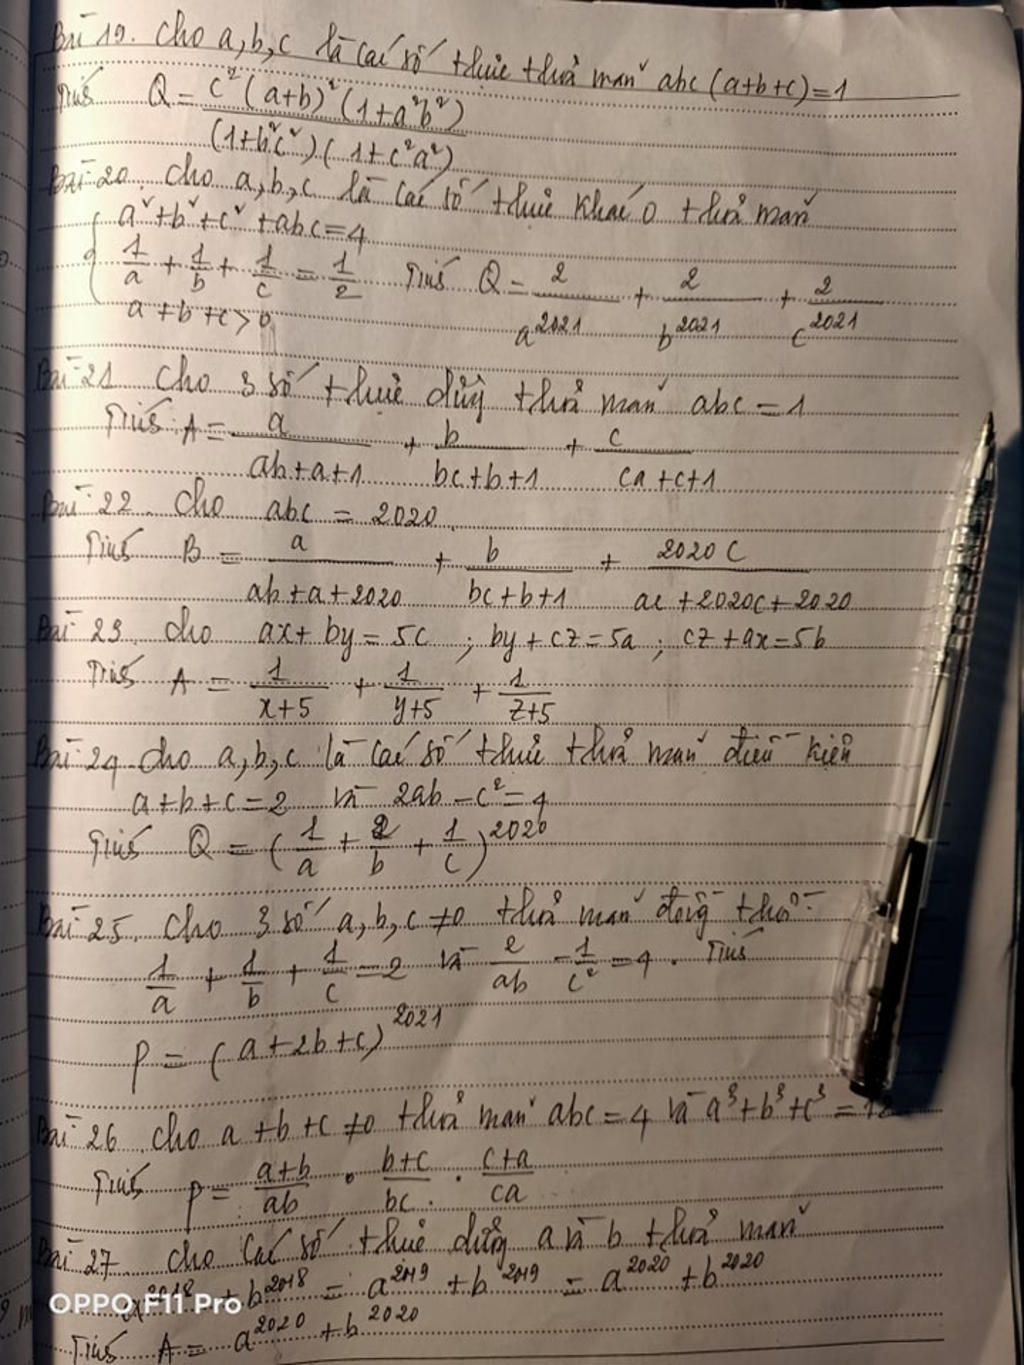 Bài 19. Cho a, b, c là các số thực thỏa mãn abc (a+b+c) = 1
Tính Q = c²(a+b)²(1+a²b²) / (1+b²c²)(1+c²a²)
Bài 20. Cho a, b, c là các số thực khác 0 thỏa mãn
{ a²+b²+c²+abc = 4
1/a + 1/b + 1/c = 1/2 Tính Q = 2/a^2021 + 2/b^2021 + 2/c^2021
a+b+c > 0
Bài 21 Cho 3 số thực dương thỏa mãn abc = 1
Tính A = a/(ab+a+1) + b/(bc+b+1) + c/(ca+c+1)
Bài 22. Cho abc = 2020.
Tính B = a/(ab+a+2020) + b/(bc+b+1) + 2020c/(ac+2020c+2020)
Bài 23. Cho ax+by=5c ; by+cz=5a ; cz+ax=5b
Tính A = 1/(x+5) + 1/(y+5) + 1/(z+5)
Bài 24 Cho a, b, c là các số thực thỏa mãn điều kiện
a+b+c=2 và 2ab-c²=4
Tính Q = (1/a + 2/b + 1/c)^2020
Bài 25. Cho 3 số a, b, c ≠0 thỏa mãn đồng thời
1/a + 1/b + 1/c = 2 và 2/ab - 1/c² = 4. Tính
P = (a+2b+c)^2021
Bài 26. Cho a+b+c ≠0 thỏa mãn abc=4 và a³+b³+c³=12
Tính P = (a+b)/ab . (b+c)/bc . (c+a)/ca
Bài 27 Cho các số thực dương a và b thỏa mãn
a^2018 + b^2018 = a^2019 + b^2019 = a^2020 + b^2020
Tính A = a^2020 + b^2020
OPPO F11 Pro